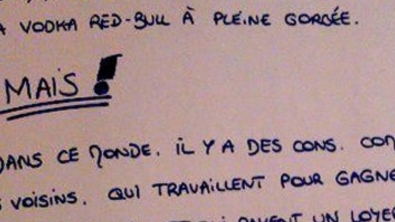 A VODKA RED-BULL À PLEINE GORGÉE.
MAIS!
DANS CE MONDE. IL Y A DES CONS.
VOISINS. QUI TRAVAILLENT POUR GAGNE
UN LOYE